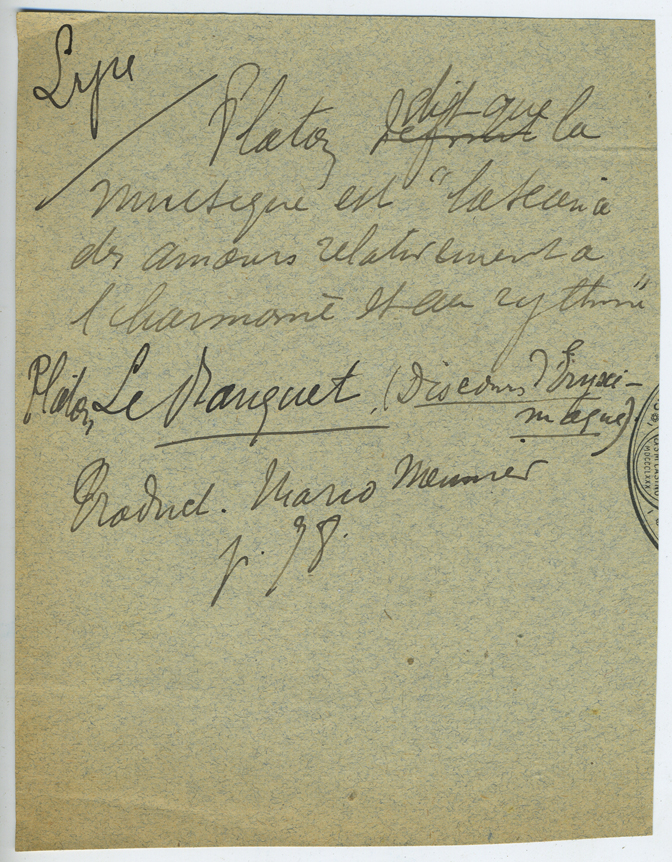 Lyre
Platon définit dit que la
musique est "la science
des amours relativement a
l'harmonie et au rythme"
Platon, Le Banquet, (Discours d'Eryxi-
maque).
Traduct. Mario Meunier
p. 78.
MDCCCLXXX